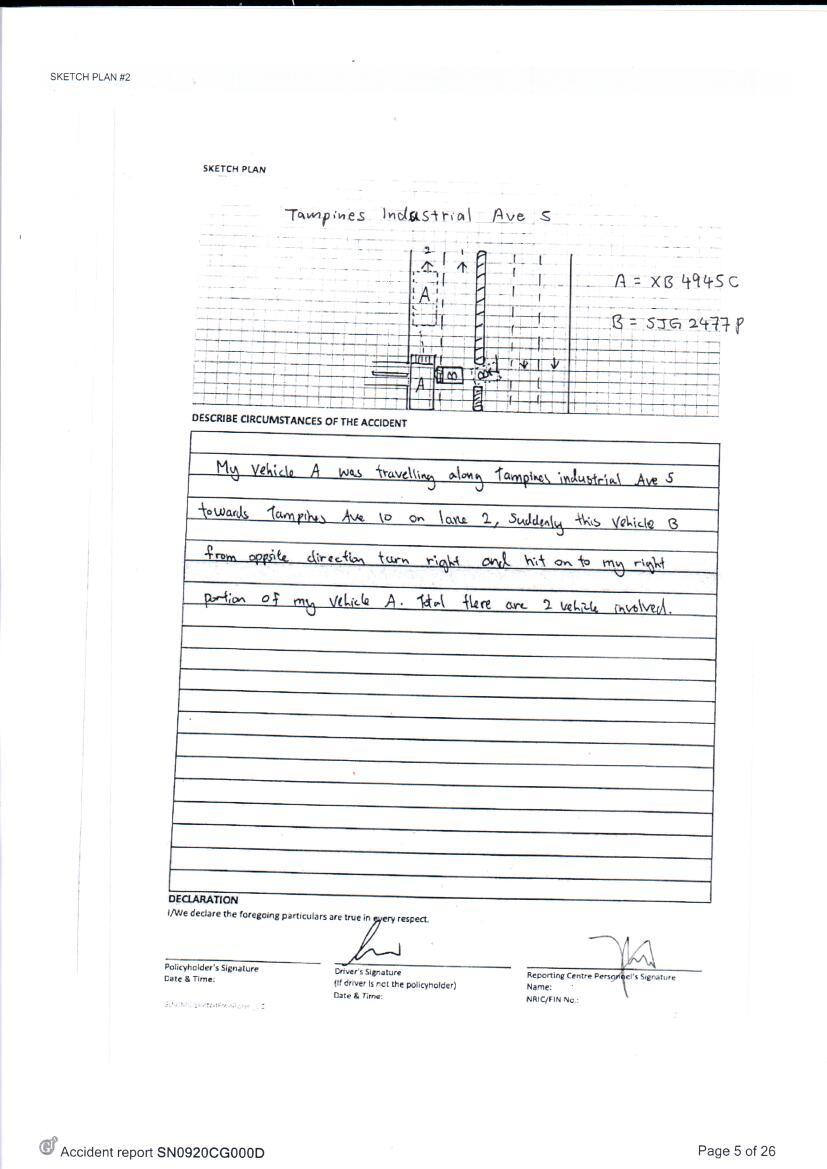 SKETCH PLAN #2
SKETCH PLAN
Tampines Industrial Ave 5
2 1
A
A = XB 4945C
B = SJG 2477P
A B B
DESCRIBE CIRCUMSTANCES OF THE ACCIDENT
My Vehicle A was travelling along Tampines industrial Ave 5
towards Tampines Ave 10 on lane 2, Suddenly this Vehicle B
from oppsite direction turn right and hit on to my right
portion of my vehicle A. Total there are 2 vehicle involved.
DECLARATION
I/We declare the foregoing particulars are true in every respect.
Policyholder's Signature
Date & Time:
Driver's Signature
(If driver is not the policyholder)
Date & Time:
Reporting Centre Personnel's Signature
Name:
NRIC/FIN No.:
Accident report SN0920CG000D
Page 5 of 26